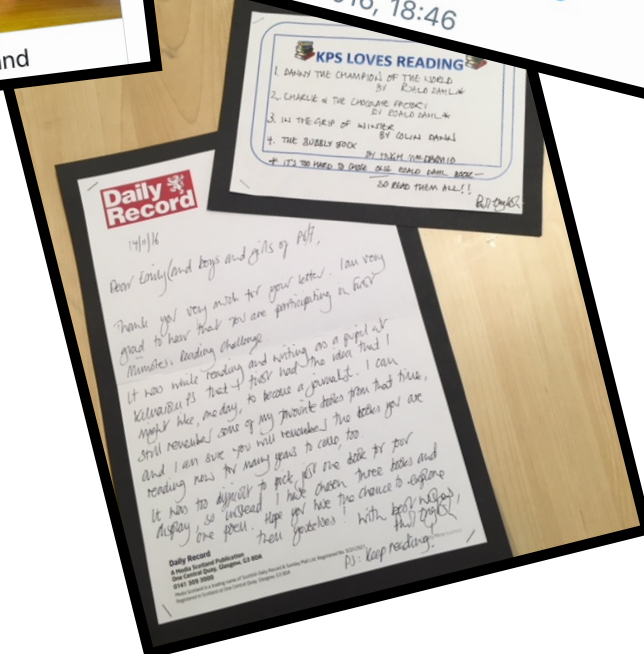 nd
16, 18:46
KPS LOVES READING
1. DANNY THE CHAMPION OF THE WORLD
BY ROALD DAHL*
2. CHARLIE & THE CHOCOLATE FACTORY
BY ROALD DAHL*
3. IN THE GRIP OF WINTER
BY COLIN DANN
4. THE BUBBLY JOCK
BY HUGH MACDIARMID
* IT'S TOO HARD TO CHOOSE ONE ROALD DAHL BOOK -
SO READ THEM ALL!!
Daily
Record
Dear Emily (and boys and girls of
Thank you very much for your letter. I am very
glad to hear that you are participating in First
Minister's Reading Challenge.
It was while reading and writing as a pupil at
PS that I first had the idea that I
might like, one day, to become a journalist. I can
still remember some of my favourite books from that time,
and I am sure you will remember the books you are
reading now for many years to come, too.
It was too difficult to pick just one book for your
display so instead I have chosen three books and
one poem. Hope you have the chance to explore
them yourselves! With best wishes,
PS: Keep reading!
Daily Record
A Media Scotland Publication
One Central Quay, Glasgow, G3 8DA
0141 309 3000